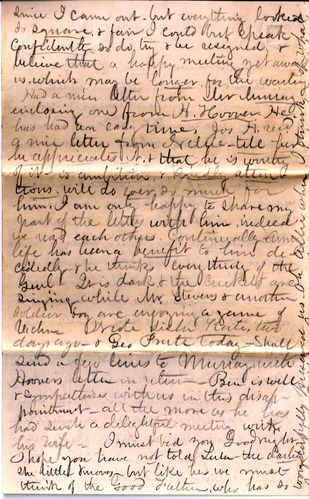 since I came out - but everything looked
so square & fair I could but speak
Confidently - so do, try & be resigned, &
believe that a happy meeting yet awaits
us, which may be longer for the waiting
Had a nice letter from Mr Murray
enclosing one from H. Hoover He
has had an easy time, Jos A. read
a nice letter from Nellie - tell her
he appreciates it, & that he is worthy
of it - his ambition & 
tions, will do ever so much for
him, I am only happy to share my
part of the letter with him, indeed
we read each others. Continually Army
life has been a benefit to him de
cidedly - & he thinks everything of the
Girl - It is dark & the Crickets are
singing while Mr Stevens & another
soldier boy are enjoying a game of
Euchre Wrote Sister two
days ago - & Geo today - Shall
send a few lines to Murray with
Hoovers letter in return - Ben is well
& sympathizes with us in this disap-
pointment - all the more as he has
had such a delightful meeting with
his wife - I must bid you Goodnight
I hope you have not told Lulu - the darling
She little knows - but like her we must
think of the Good Father, who has so